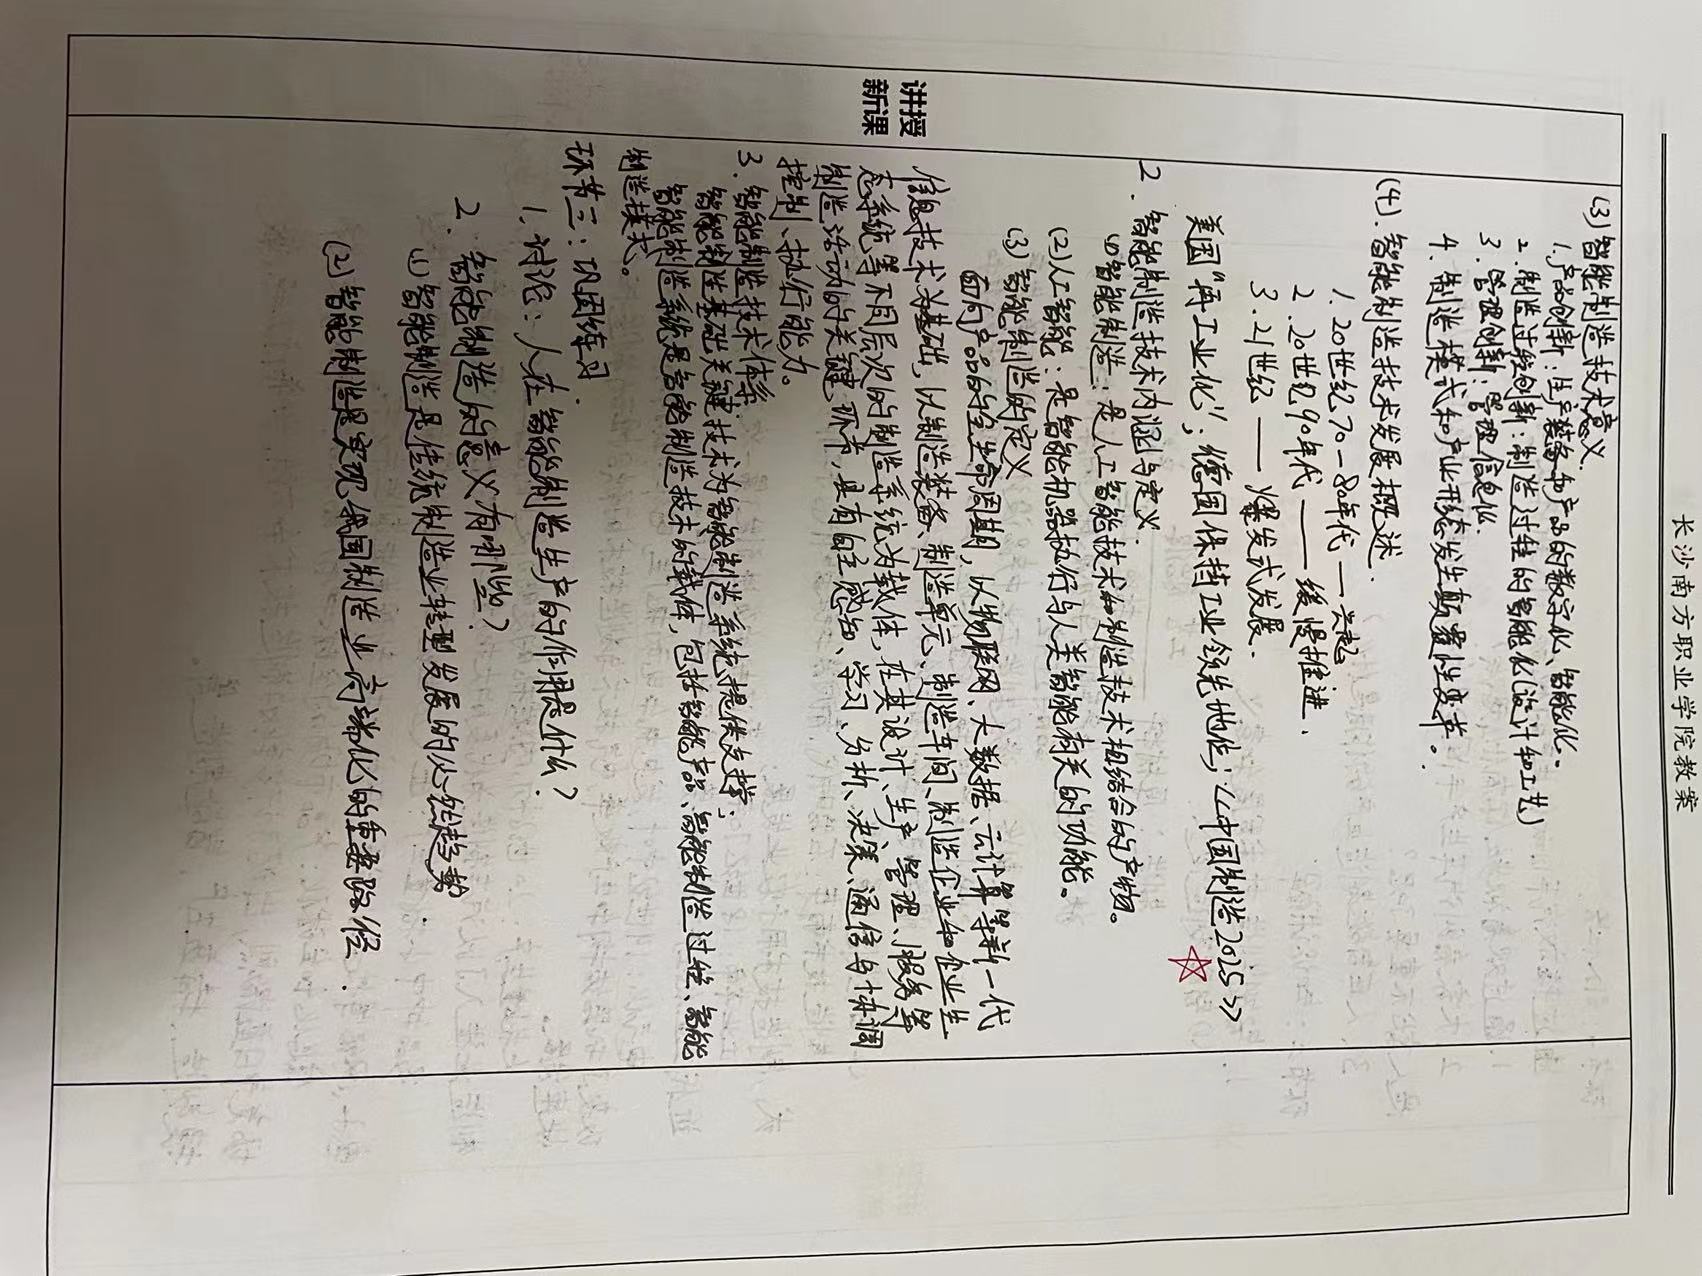 长沙南方职业学院教案
讲授
新课
(3) 智能制造技术意义.
1. 产品创新: 生产装备和产品的数字化、智能化.
2. 制造过程创新: 制造过程的智能化(设计和工艺)
3. 管理创新: 管理信息化.
4. 制造模式和产业形态发生颠覆性变革。
(4). 智能制造技术发展概述.
1. 20世纪70-80年代 — 兴起
2. 20世纪90年代 —— 缓慢推进.
3. 21世纪 —— 爆发式发展.
美国“再工业化”; 德国保持工业领先地位; 《中国制造2025》
2. 智能制造技术内涵与定义.
(1) 智能制造: 是人工智能技术和制造技术相结合的产物。
(2) 人工智能: 是智能机器执行与人类智能有关的功能。
(3) 智能制造的定义
面向产品的全生命周期, 以物联网、大数据、云计算等新一代
信息技术为基础, 以制造装备、制造单元、制造车间、制造企业和企业生
态系统等不同层次的制造系统为载体, 在其设计、生产、管理、服务等
制造活动的关键环节, 具有自主感知、学习、分析、决策、通信与协调
控制、执行能力。
3. 智能制造技术体系
智能制造基础关键技术为智能制造系统提供支撑;
智能制造系统是智能制造技术的载体, 包括智能产品、智能制造过程、智能
制造模式。
环节三: 巩固练习
1. 讨论: 人在智能制造生产的作用是什么?
2. 智能制造的意义有哪些?
(1) 智能制造是传统制造业转型发展的必然趋势.
(2) 智能制造是实现我国制造业高端化的重要路径.